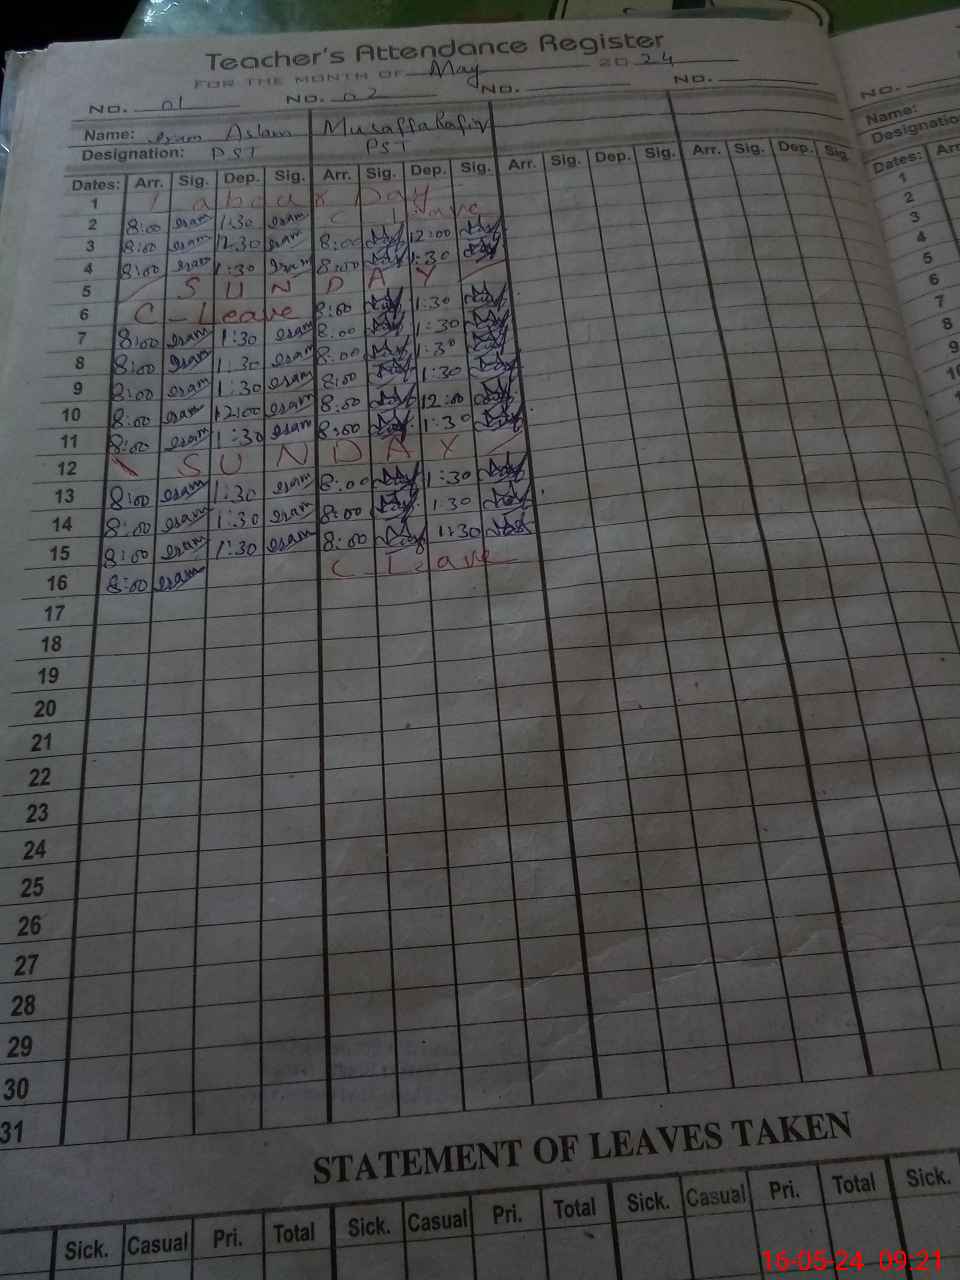 Teacher's Attendance Register
FOR THE MONTH OF May 2024
NO. 01 NO. 02 NO. NO.
Name: Aslam
Designation: PST PST
Dates: Arr. Sig. Dep. Sig. Arr. Sig. Dep. Sig. Arr. Sig. Dep. Sig. Arr. Sig. Dep. Sig.
1 Labour Day
2 8:00 esam 1:30 esam C Leave
3 8:00 esam 12:30 esam 8:00 12:00
4 8:00 esam 1:30 esam 8:00 1:30
5 SUNDAY
6 C-Leave 8:00 1:30
7 8:00 esam 1:30 esam 8:00 1:30
8 8:00 esam 1:30 esam 8:00 1:30
9 8:00 esam 1:30 esam 8:00 1:30
10 8:00 esam 12:00 esam 8:00 12:00
11 8:00 esam 1:30 esam 8:00 1:30
12 SUNDAY
13 8:00 esam 1:30 esam 8:00 1:30
14 8:00 esam 1:30 esam 8:00 1:30
15 8:00 esam 1:30 esam 8:00 1:30
16 8:00 esam C Leave
17
18
19
20
21
22
23
24
25
26
27
28
29
30
31
STATEMENT OF LEAVES TAKEN
Sick. Casual Pri. Total Sick. Casual Pri. Total Sick. Casual Pri. Total Sick.
NO.
Name:
Dates: Arr
1
2
3
4
5
6
7
8
9
10
16-05-24 09:21